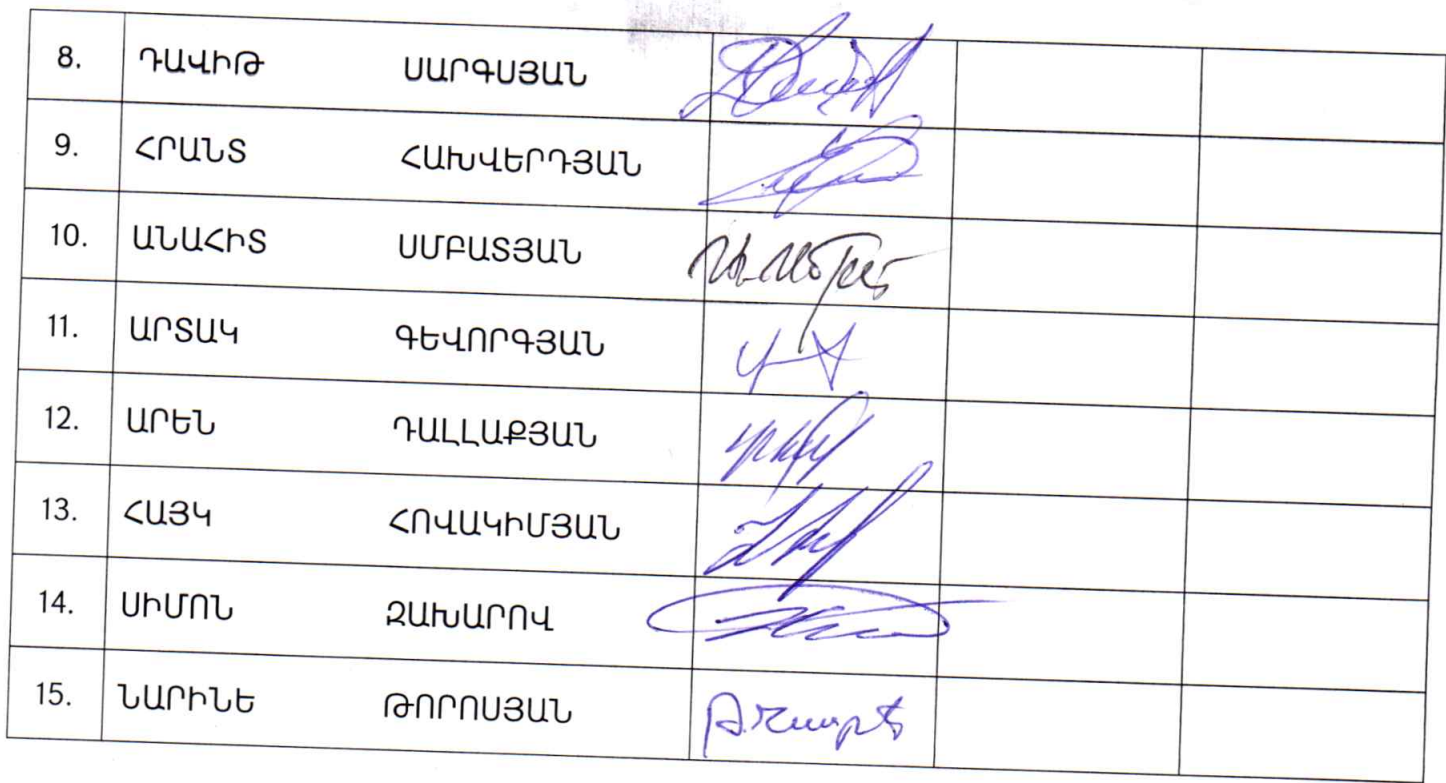 8. ԴԱՎԻԹ ՍԱՐԳՍՅԱՆ
9. ՀՐԱՆՏ ՀԱԽՎԵՐԴՅԱՆ
10. ԱՆԱՀԻՏ ՍՄԲԱՏՅԱՆ
11. ԱՐՏԱԿ ԳԵՎՈՐԳՅԱՆ
12. ԱՐԵՆ ԴԱԼԼԱՔՅԱՆ
13. ՀԱՅԿ ՀՈՎԱԿԻՄՅԱՆ
14. ՍԻՄՈՆ ԶԱԽԱՐՈՎ
15. ՆԱՐԻՆԵ ԹՈՐՈՍՅԱՆ